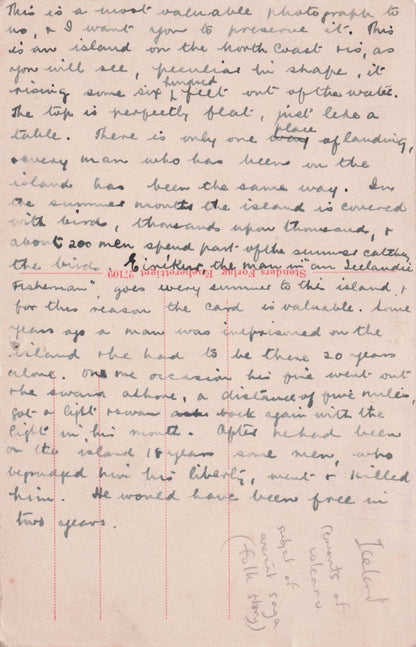 This is a most valuable photograph to
us, & I want you to preserve it. This
is an island on the North Coast & is, as
you will see, peculiar in shape, it
rising some six hundred feet out of the water.
The top is perfectly flat, just like a
table. There is only one way place of landing,
& every man who has been on the
island has been the same way. In
the summer months the island is covered
with birds, thousands upon thousand, &
about 200 men spend part of the summer catching
the birds. the man in "an Icelandic
Fisherman", goes every summer to this island &
for this reason the card is valuable. Some
years ago a man was imprisoned on the
island & he had to be there 20 years
alone. On one occasion his fire went out
& he swam ashore, a distance of five miles,
got a light & swam back again with the
light in his mouth. After he had been
on the island 18 years some men, who
begrudged him his liberty, went & killed
him. He would have been free in
two years.
Stenders Forlag. Eneberettiget 27109
Iceland
remants of
volcano
subject of
ancient saga
(folk story)